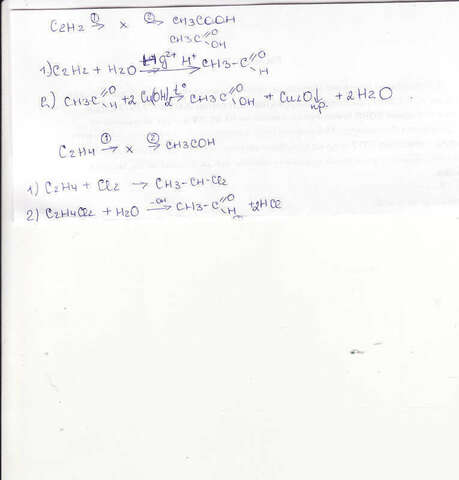 C2H2 ①→ x ②→ CH3COOH
CH3C=O OH
1) C2H2 + H2O Hg2+ H+ → CH3-C=O H
2) CH3C=O H +2 Cu(OH)2 t° → CH3C=O OH + Cu2O↓ + 2H2O .
C2H4 ①→ x ②→ CH3COH
1) C2H4 + Cl2 → CH3-CH-Cl2
2) C2H4Cl2 + H2O -OH → CH3-C=O H +2HCl